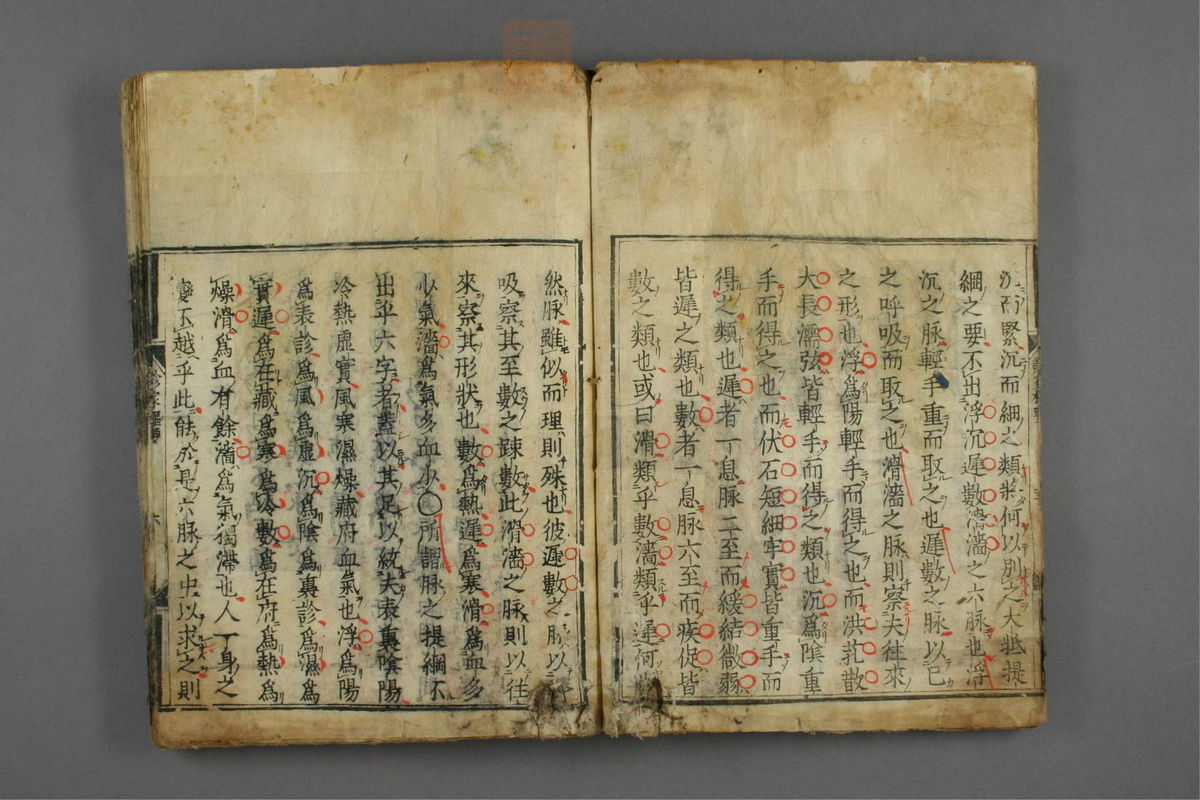 沉而緊沉而細之類将何以別之大抵提
綱之要不出浮沉遲數滑濇之六脉也浮
沉之脉輕手重而取之也遲數之脉以已
之呼吸而取之也滑濇之脉則察夫往來
之形也浮爲陽輕手而得之也而洪芤散
大長濡弦皆輕手而得之類也沉爲陰重
手而得之也而伏石短細牢實皆重手而
得之類也遲者一息脉二至而緩結微弱
皆遲之類也數者一息脉六至而疾促皆
數之類也或曰滑類乎數濇類乎遲何
然脉雖似而理則殊也彼遲數之脉以
吸察其至數之踈數此滑濇之脉則以往
來察其形狀也數爲熱遲爲寒滑爲血多
少氣濇爲氣多血少〇所謂脉之提綱不
出乎六字者蓋以其足以統夫表裏陰陽
冷熱虛實風寒濕燥藏府血氣也浮爲陽
爲表診爲風爲虛沉爲陰爲裏診爲濕爲
實遲爲在藏爲寒爲冷數爲在府爲熱爲
燥滑爲血有餘濇爲氣獨滯也人一身之
變不越乎此能於是六脉之中以求之則